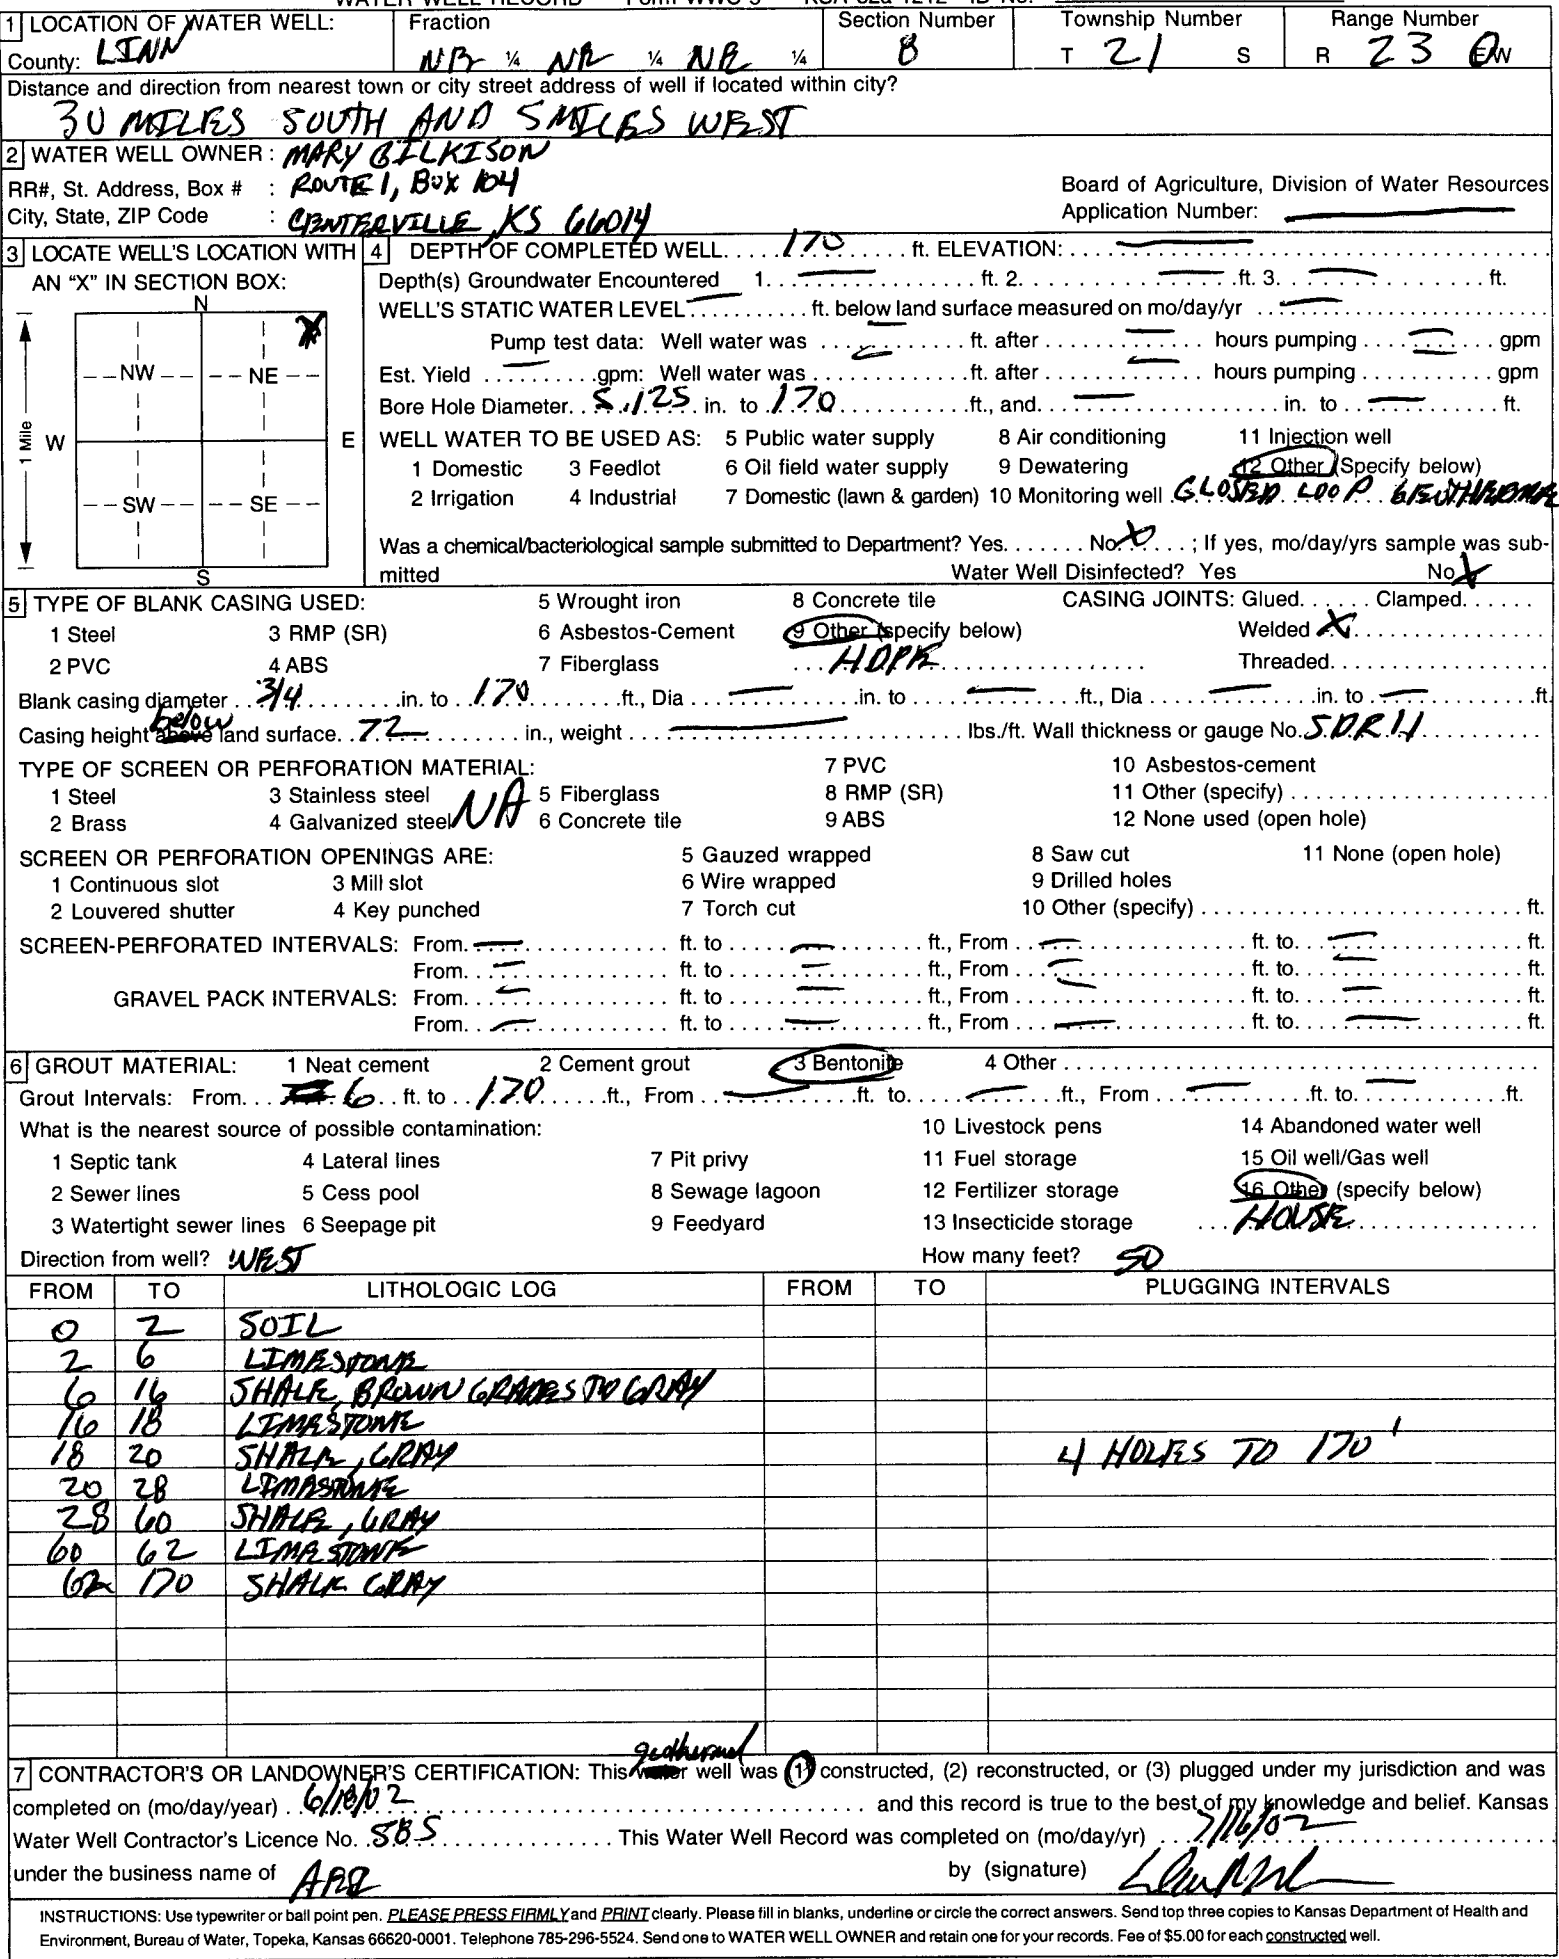 WATER WELL RECORD Form WWC-5 KSA 82a-1212 ID No.
1 LOCATION OF WATER WELL: Fraction Section Number Township Number Range Number
County: LINN NE ¼ NE ¼ NE ¼ 8 T 21 S R 23 E/W
Distance and direction from nearest town or city street address of well if located within city?
30 MILES SOUTH AND 5 MILES WEST
2 WATER WELL OWNER: MARY GILKISON
RR#, St. Address, Box # : ROUTE 1, BOX 104 Board of Agriculture, Division of Water Resources
City, State, ZIP Code : CENTERVILLE, KS 66014 Application Number:
3 LOCATE WELL'S LOCATION WITH AN "X" IN SECTION BOX:
N
X
NW NE
1 Mile W E
SW SE
S
4 DEPTH OF COMPLETED WELL 170 ft. ELEVATION:
Depth(s) Groundwater Encountered 1. ft. 2. ft. 3. ft.
WELL'S STATIC WATER LEVEL ft. below land surface measured on mo/day/yr
Pump test data: Well water was ft. after hours pumping gpm
Est. Yield gpm: Well water was ft. after hours pumping gpm
Bore Hole Diameter 5.125 in. to 170 ft., and in. to ft.
WELL WATER TO BE USED AS: 5 Public water supply 8 Air conditioning 11 Injection well
1 Domestic 3 Feedlot 6 Oil field water supply 9 Dewatering 12 Other (Specify below)
2 Irrigation 4 Industrial 7 Domestic (lawn & garden) 10 Monitoring well CLOSED LOOP
Was a chemical/bacteriological sample submitted to Department? Yes No X ; If yes, mo/day/yrs sample was sub-
mitted Water Well Disinfected? Yes No X
5 TYPE OF BLANK CASING USED: 5 Wrought iron 8 Concrete tile CASING JOINTS: Glued Clamped
1 Steel 3 RMP (SR) 6 Asbestos-Cement 9 Other (specify below) Welded X
2 PVC 4 ABS 7 Fiberglass HDPE Threaded
Blank casing diameter 3/4 in. to 170 ft., Dia in. to ft., Dia in. to ft.
below
Casing height above land surface 72 in., weight lbs./ft. Wall thickness or gauge No. SDR 11
TYPE OF SCREEN OR PERFORATION MATERIAL: 7 PVC 10 Asbestos-cement
1 Steel 3 Stainless steel NA 5 Fiberglass 8 RMP (SR) 11 Other (specify)
2 Brass 4 Galvanized steel 6 Concrete tile 9 ABS 12 None used (open hole)
SCREEN OR PERFORATION OPENINGS ARE: 5 Gauzed wrapped 8 Saw cut 11 None (open hole)
1 Continuous slot 3 Mill slot 6 Wire wrapped 9 Drilled holes
2 Louvered shutter 4 Key punched 7 Torch cut 10 Other (specify) ft.
SCREEN-PERFORATED INTERVALS: From ft. to ft., From ft. to ft.
From ft. to ft., From ft. to ft.
GRAVEL PACK INTERVALS: From ft. to ft., From ft. to ft.
From ft. to ft., From ft. to ft.
6 GROUT MATERIAL: 1 Neat cement 2 Cement grout 3 Bentonite 4 Other
Grout Intervals: From 6 ft. to 170 ft., From ft. to ft., From ft. to ft.
What is the nearest source of possible contamination: 10 Livestock pens 14 Abandoned water well
1 Septic tank 4 Lateral lines 7 Pit privy 11 Fuel storage 15 Oil well/Gas well
2 Sewer lines 5 Cess pool 8 Sewage lagoon 12 Fertilizer storage 16 Other (specify below)
3 Watertight sewer lines 6 Seepage pit 9 Feedyard 13 Insecticide storage HOUSE
Direction from well? WEST How many feet? 50
FROM TO LITHOLOGIC LOG FROM TO PLUGGING INTERVALS
0 2 SOIL
2 6 LIMESTONE
6 16 SHALE, BROWN GRADES TO GRAY
16 18 LIMESTONE
18 20 SHALE, GRAY 4 HOLES TO 170'
20 28 LIMESTONE
28 60 SHALE, GRAY
60 62 LIMESTONE
62 170 SHALE GRAY
geothermal
7 CONTRACTOR'S OR LANDOWNER'S CERTIFICATION: This water well was (1) constructed, (2) reconstructed, or (3) plugged under my jurisdiction and was
completed on (mo/day/year) 6/18/02 and this record is true to the best of my knowledge and belief. Kansas
Water Well Contractor's Licence No. 585 This Water Well Record was completed on (mo/day/yr) 7/16/02
under the business name of by (signature)
INSTRUCTIONS: Use typewriter or ball point pen. PLEASE PRESS FIRMLY and PRINT clearly. Please fill in blanks, underline or circle the correct answers. Send top three copies to Kansas Department of Health and
Environment, Bureau of Water, Topeka, Kansas 66620-0001. Telephone 785-296-5524. Send one to WATER WELL OWNER and retain one for your records. Fee of $5.00 for each constructed well.